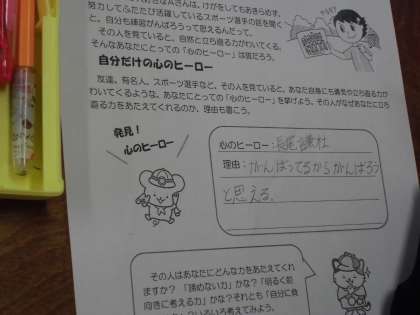 努力してふたたび活躍しているスポーツ選手の話を聞く
と、自分も練習がんばろうって思えるんだって。
その人を見ていると、自然と立ち迫る力がわいてくる。
そんなあなたにとっての「心のヒーロー」は誰だろう。
自分だけの心のヒーロー
友達、有名人、スポーツ選手など、その人を見ていると、あなた自身にも勇気や立ち迫る力が
わいてくるような、あなたにとっての「心のヒーロー」を挙げよう。その人がなぜあなたに立ち
迫る力をあたえてくれるのか、理由も書こう。
発見!
心のヒーロー
心のヒーロー:
理由:がんばってるからがんばろう
と思える。
その人はあなたにどんな力をあたえてくれ
ますか?「諦めない力」かな?「明るく前
向きに考える力」かな?それとも「自分に負